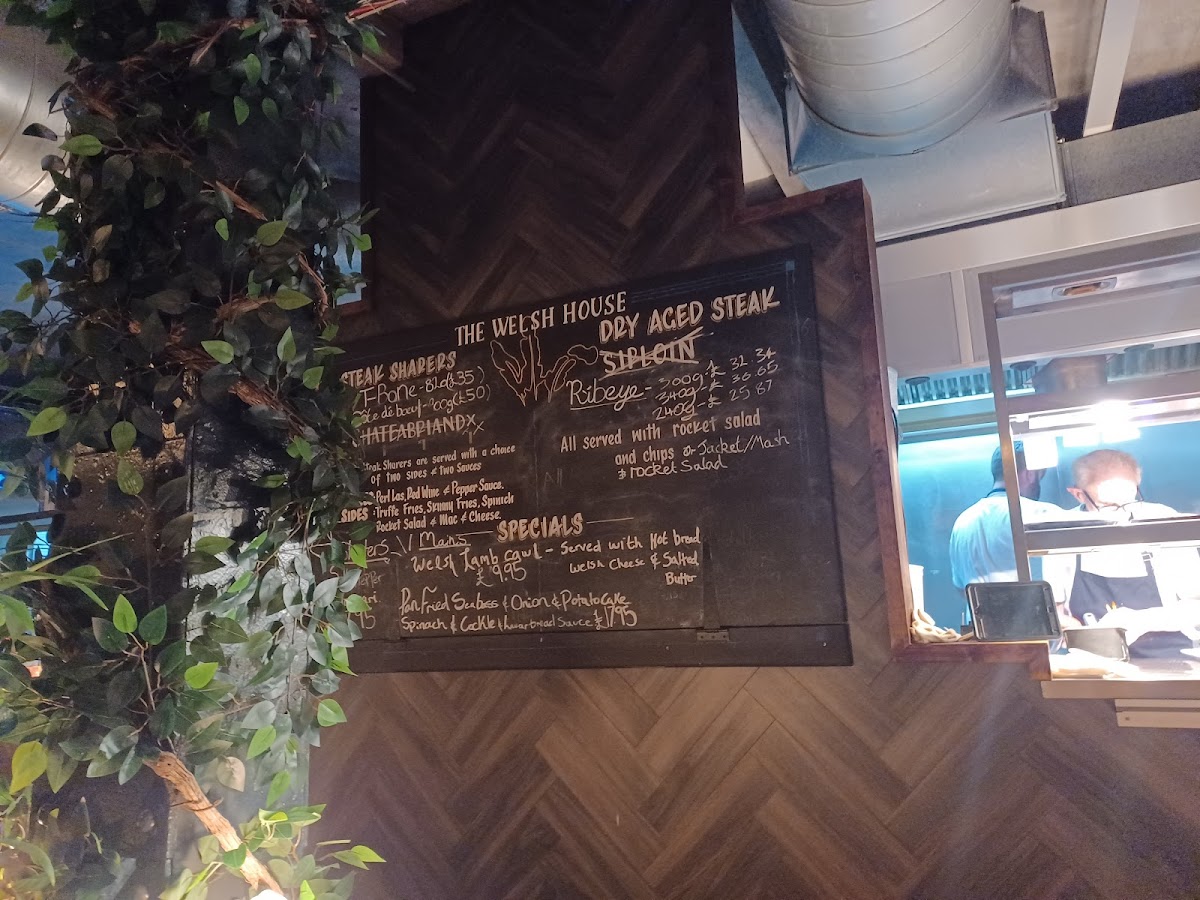 THE WELSH HOUSE
STEAK SHARERS
T-Bone - (£35)
de bœuf - 900g (£50)
HATEABRIAND XX
Steak Sharers are served with a choice
of two sides & two sauces
Perl Las, Red Wine & Pepper Sauce.
SIDES - Truffe Fries, Skinny Fries, Spinich
Rocket Salad & Mac & Cheese.
DRY AGED STEAK
SIRLOIN
Ribeye - 500g - £ 32.34
340g - £ 30.65
240g - £ 25.87
All served with rocket salad
and chips or Jacket/Mash
& rocket Salad
SPECIALS
Mains
Welsh Lamb cawl - Served with Hot bread
£9.95 Welsh Cheese & Salted
Butter
Pan Fried Seabass & Onion & Potato Cake
Spinach & Cockle & Sauce £17.95